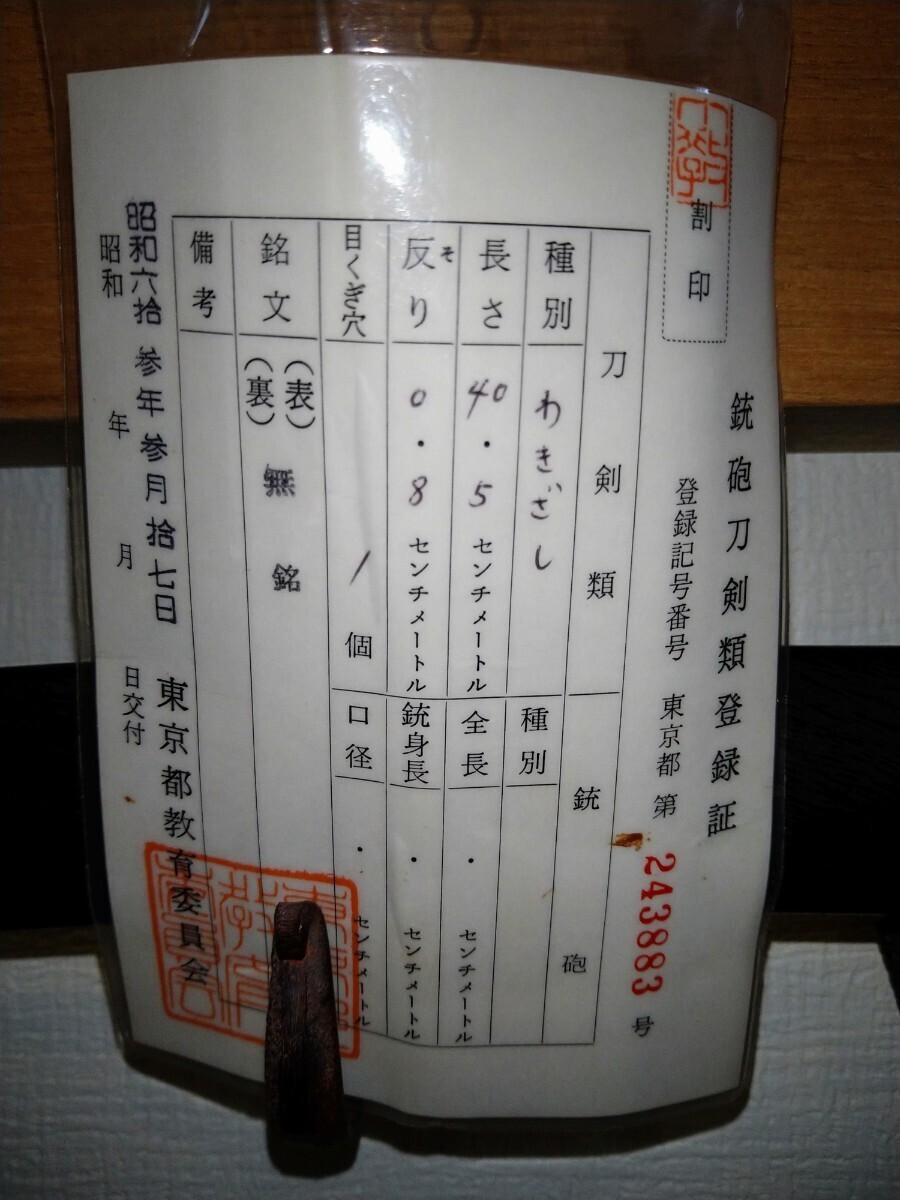 割印
銃砲刀剣類登録証
登録記号番号 東京都 第 243883 号
刀剣類
銃砲
種別 わきざし
種別
長さ 40.5 センチメートル
全長 . センチメートル
反り そ 0.8 センチメートル
銃身長 . センチメートル
目くぎ穴 1 個
口径 . センチメートル
銘文 (表) 無銘
(裏)
備考
昭和六拾参年参月拾七日
昭和 年 月 日交付
東京都教育委員会